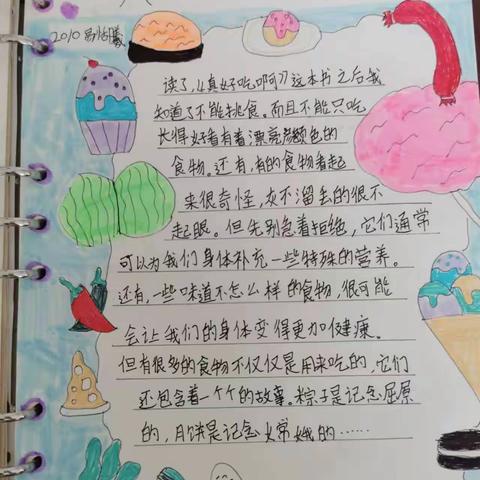 2010
读了,《真好吃啊》这本书之后我
知道了不能挑食。而且不能只吃
长得好看有着漂亮颜色的
食物。还有,有的食物看起
来很奇怪,灰不溜丢的很不
起眼。但先别急着拒绝,它们通常
可以为我们身体补充一些特殊的营养。
还有,一些味道不怎么样的食物,很可能
会让我们的身体变得更加健康。
但有很多的食物不仅仅是用来吃的,它们
还包含着一个个的故事。粽子是记念屈原
的,月饼是记念嫦娥的……